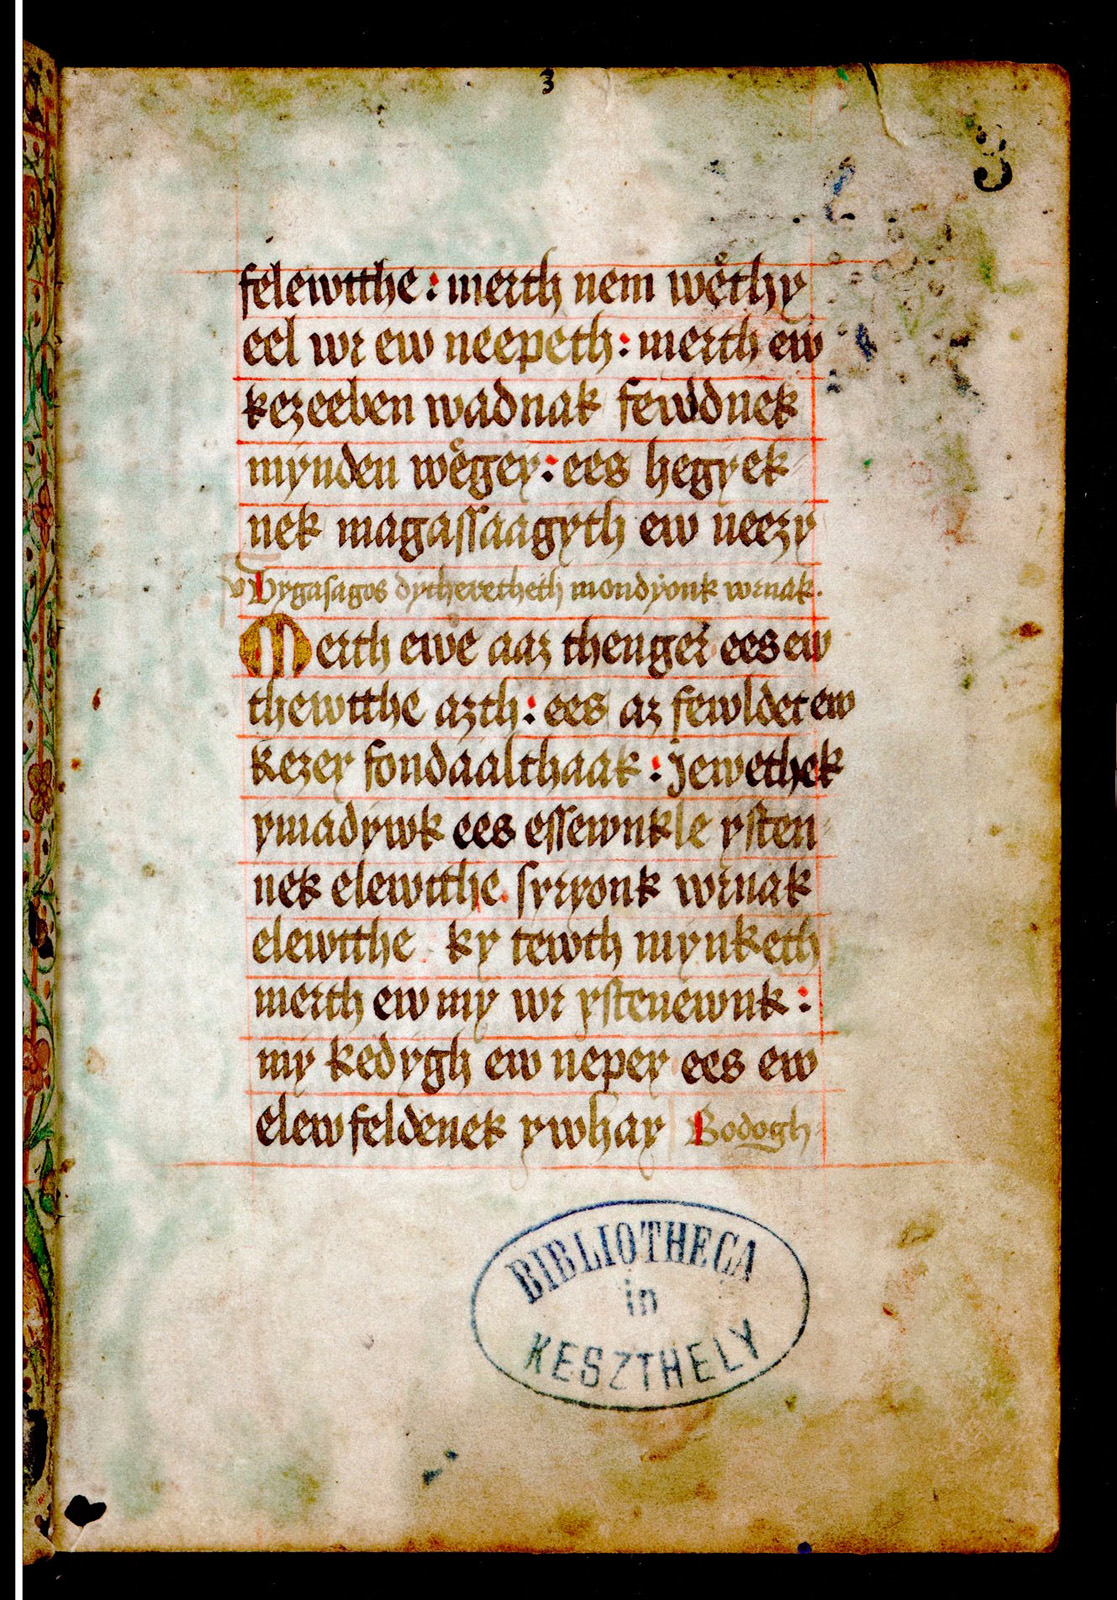 3
3
felewtthe : merth nem wethy
eel wr ew neepeth : merth ew
kezeeben wadnak fewldnek
mynden wegey : ees hegyek
nek magassaagyth ew neezy
Vygasagos dytheretheth mondyonk wrnak.
Merth ewe aaz thenger ees ew
thewtthe azth : ees az fewldet ew
kezey fondaalthaak : Jewethek
ymadywk ees essewnk le ysten
nek elewtthe. syryonk wrnak
elewtthe ky tewth mynketh
merth ew my wr ystenewnk :
my kedygh ew nepey ees ew
elew feldenek ywhay Bodogh
BIBLIOTHECA
in
KESZTHELY